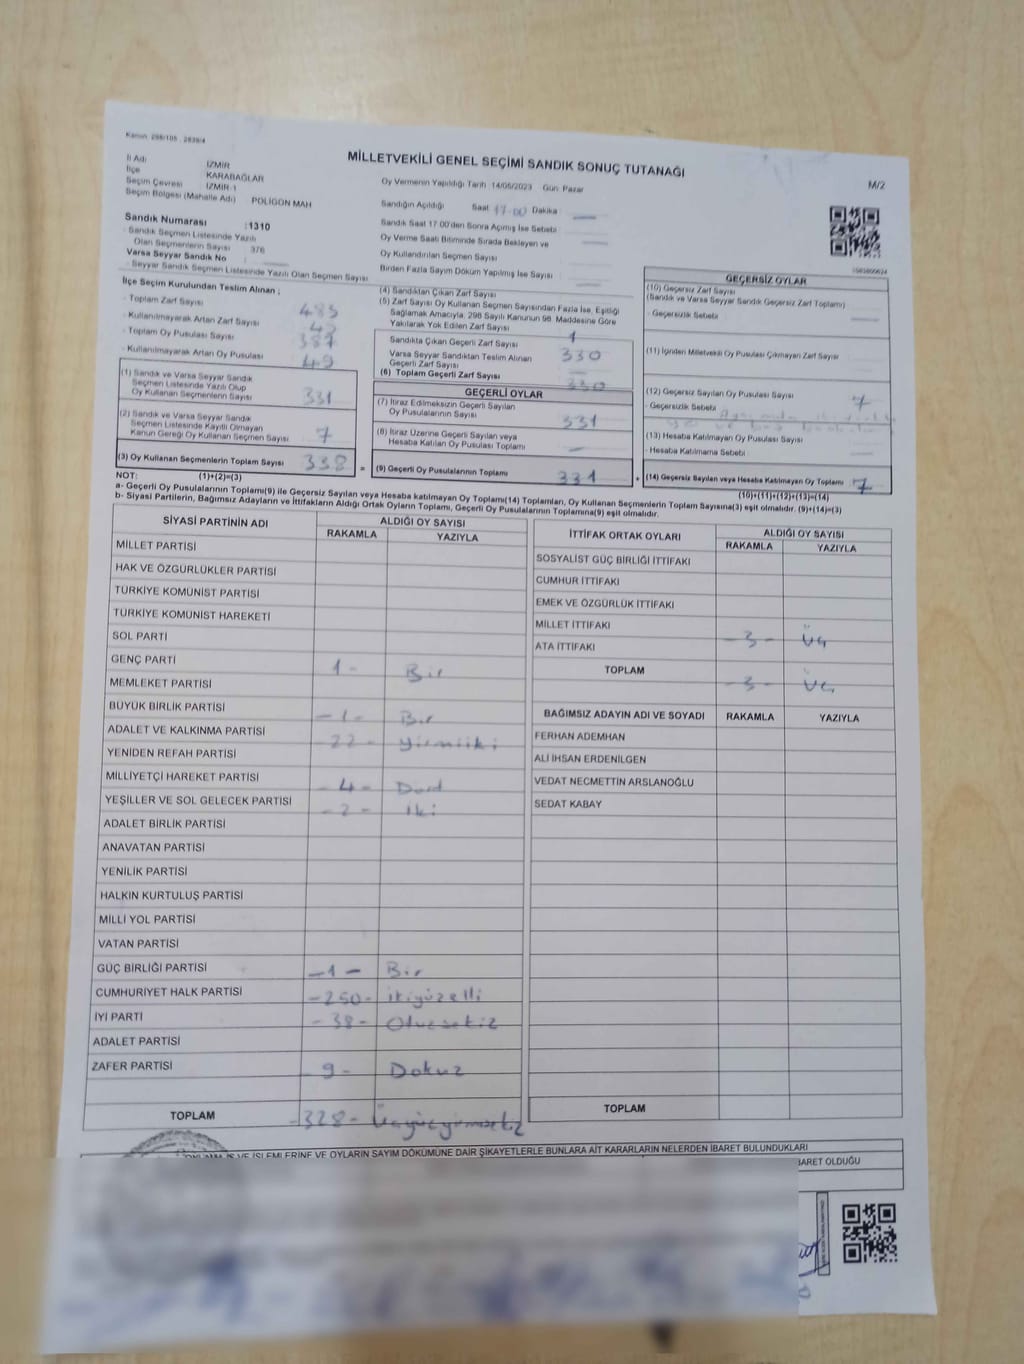 Kanun: 298/105 , 2839/4
MİLLETVEKİLİ GENEL SEÇİMİ SANDIK SONUÇ TUTANAĞI
M/2
İl Adı İZMİR
İlçe KARABAĞLAR
Seçim Çevresi İZMİR-1
Seçim Bölgesi (Mahalle Adı) POLİGON MAH
Oy Vermenin Yapıldığı Tarih 14/05/2023 Gün Pazar
Sandığın Açıldığı Saat 17:00 Dakika
Sandık Saat 17:00'den Sonra Açılmış İse Sebebi
Oy Verme Saati Bitiminde Sırada Bekleyen ve
Oy Kullandırılan Seçmen Sayısı
Birden Fazla Sayım Döküm Yapılmış İse Sayısı
Sandık Numarası :1310
- Sandık Seçmen Listesinde Yazılı
Olan Seçmenlerin Sayısı : 376
Varsa Seyyar Sandık No :
- Seyyar Sandık Seçmen Listesinde Yazılı Olan Seçmen Sayısı
İlçe Seçim Kurulundan Teslim Alınan ;
- Toplam Zarf Sayısı
- Kullanılmayarak Artan Zarf Sayısı
- Toplam Oy Pusulası Sayısı 387
- Kullanılmayarak Artan Oy Pusulası 49
(1) Sandık ve Varsa Seyyar Sandık
Seçmen Listesinde Yazılı Olup
Oy Kullanan Seçmenlerin Sayısı 331
(2) Sandık ve Varsa Seyyar Sandık
Seçmen Listesinde Kayıtlı Olmayan
Kanun Gereği Oy Kullanan Seçmen Sayısı 7
(3) Oy Kullanan Seçmenlerin Toplam Sayısı 338 =
(1)+(2)=(3)
(4) Sandıktan Çıkan Zarf Sayısı
(5) Zarf Sayısı Oy Kullanan Seçmen Sayısından Fazla İse, Eşitliği
Sağlamak Amacıyla, 298 Sayılı Kanunun 98. Maddesine Göre
Yakılarak Yok Edilen Zarf Sayısı
Sandıkta Çıkan Geçerli Zarf Sayısı 1
Varsa Seyyar Sandıktan Teslim Alınan 330
Geçerli Zarf Sayısı
(6) Toplam Geçerli Zarf Sayısı 330
GEÇERLİ OYLAR
(7) İtiraz Edilmeksizin Geçerli Sayılan
Oy Pusulalarının Sayısı 331
(8) İtiraz Üzerine Geçerli Sayılan veya
Hesaba Katılan Oy Pusulası Toplamı
(9) Geçerli Oy Pusulalarının Toplamı 331 +
GEÇERSİZ OYLAR
(10) Geçersiz Zarf Sayısı
(Sandık ve Varsa Seyyar Sandık Geçersiz Zarf Toplamı)
- Geçersizlik Sebebi
(11) İçinden Milletvekili Oy Pusulası Çıkmayan Zarf Sayısı
(12) Geçersiz Sayılan Oy Pusulası Sayısı 7
- Geçersizlik Sebebi
(13) Hesaba Katılmayan Oy Pusulası Sayısı
- Hesaba Katılmama Sebebi
(14) Geçersiz Sayılan veya Hesaba Katılmayan Oy Toplamı 7
(10)+(11)+(12)+(13)=(14)
NOT:
a- Geçerli Oy Pusulalarının Toplamı(9) ile Geçersiz Sayılan veya Hesaba katılmayan Oy Toplamı(14) Toplamları, Oy Kullanan Seçmenlerin Toplam Sayısına(3) eşit olmalıdır. (9)+(14)=(3)
b- Siyasi Partilerin, Bağımsız Adayların ve İttifakların Aldığı Ortak Oyların Toplamı, Geçerli Oy Pusulalarının Toplamına(9) eşit olmalıdır.
SİYASİ PARTİNİN ADI ALDIĞI OY SAYISI
RAKAMLA YAZIYLA
MİLLET PARTİSİ
HAK VE ÖZGÜRLÜKLER PARTİSİ
TÜRKİYE KOMÜNİST PARTİSİ
TÜRKİYE KOMÜNİST HAREKETİ
SOL PARTİ
GENÇ PARTİ 1 - Bir
MEMLEKET PARTİSİ
BÜYÜK BİRLİK PARTİSİ - 1 - Bir
ADALET VE KALKINMA PARTİSİ - 22 - yirmiiki
YENİDEN REFAH PARTİSİ
MİLLİYETÇİ HAREKET PARTİSİ - 4 - Dört
YEŞİLLER VE SOL GELECEK PARTİSİ - 2 - İki
ADALET BİRLİK PARTİSİ
ANAVATAN PARTİSİ
YENİLİK PARTİSİ
HALKIN KURTULUŞ PARTİSİ
MİLLİ YOL PARTİSİ
VATAN PARTİSİ
GÜÇ BİRLİĞİ PARTİSİ - 1 - Bir
CUMHURİYET HALK PARTİSİ - 250 - ikiyüzelli
İYİ PARTİ - 38 - Otuzsekiz
ADALET PARTİSİ
ZAFER PARTİSİ 9 - Dokuz
TOPLAM - 328 - Üçyüzyirmisekiz
İTTİFAK ORTAK OYLARI ALDIĞI OY SAYISI
RAKAMLA YAZIYLA
SOSYALİST GÜÇ BİRLİĞİ İTTİFAKI
CUMHUR İTTİFAKI
EMEK VE ÖZGÜRLÜK İTTİFAKI
MİLLET İTTİFAKI - 3 - Üç
ATA İTTİFAKI
TOPLAM - 3 - Üç
BAĞIMSIZ ADAYIN ADI VE SOYADI RAKAMLA YAZIYLA
FERHAN ADEMHAN
ALİ İHSAN ERDENİLGEN
VEDAT NECMETTİN ARSLANOĞLU
SEDAT KABAY
TOPLAM
İŞ VE İŞLEMLERİNE VE OYLARIN SAYIM DÖKÜMÜNE DAİR ŞİKAYETLERLE BUNLARA AİT KARARLARIN NELERDEN İBARET BULUNDUKLARI
İBARET OLDUĞU